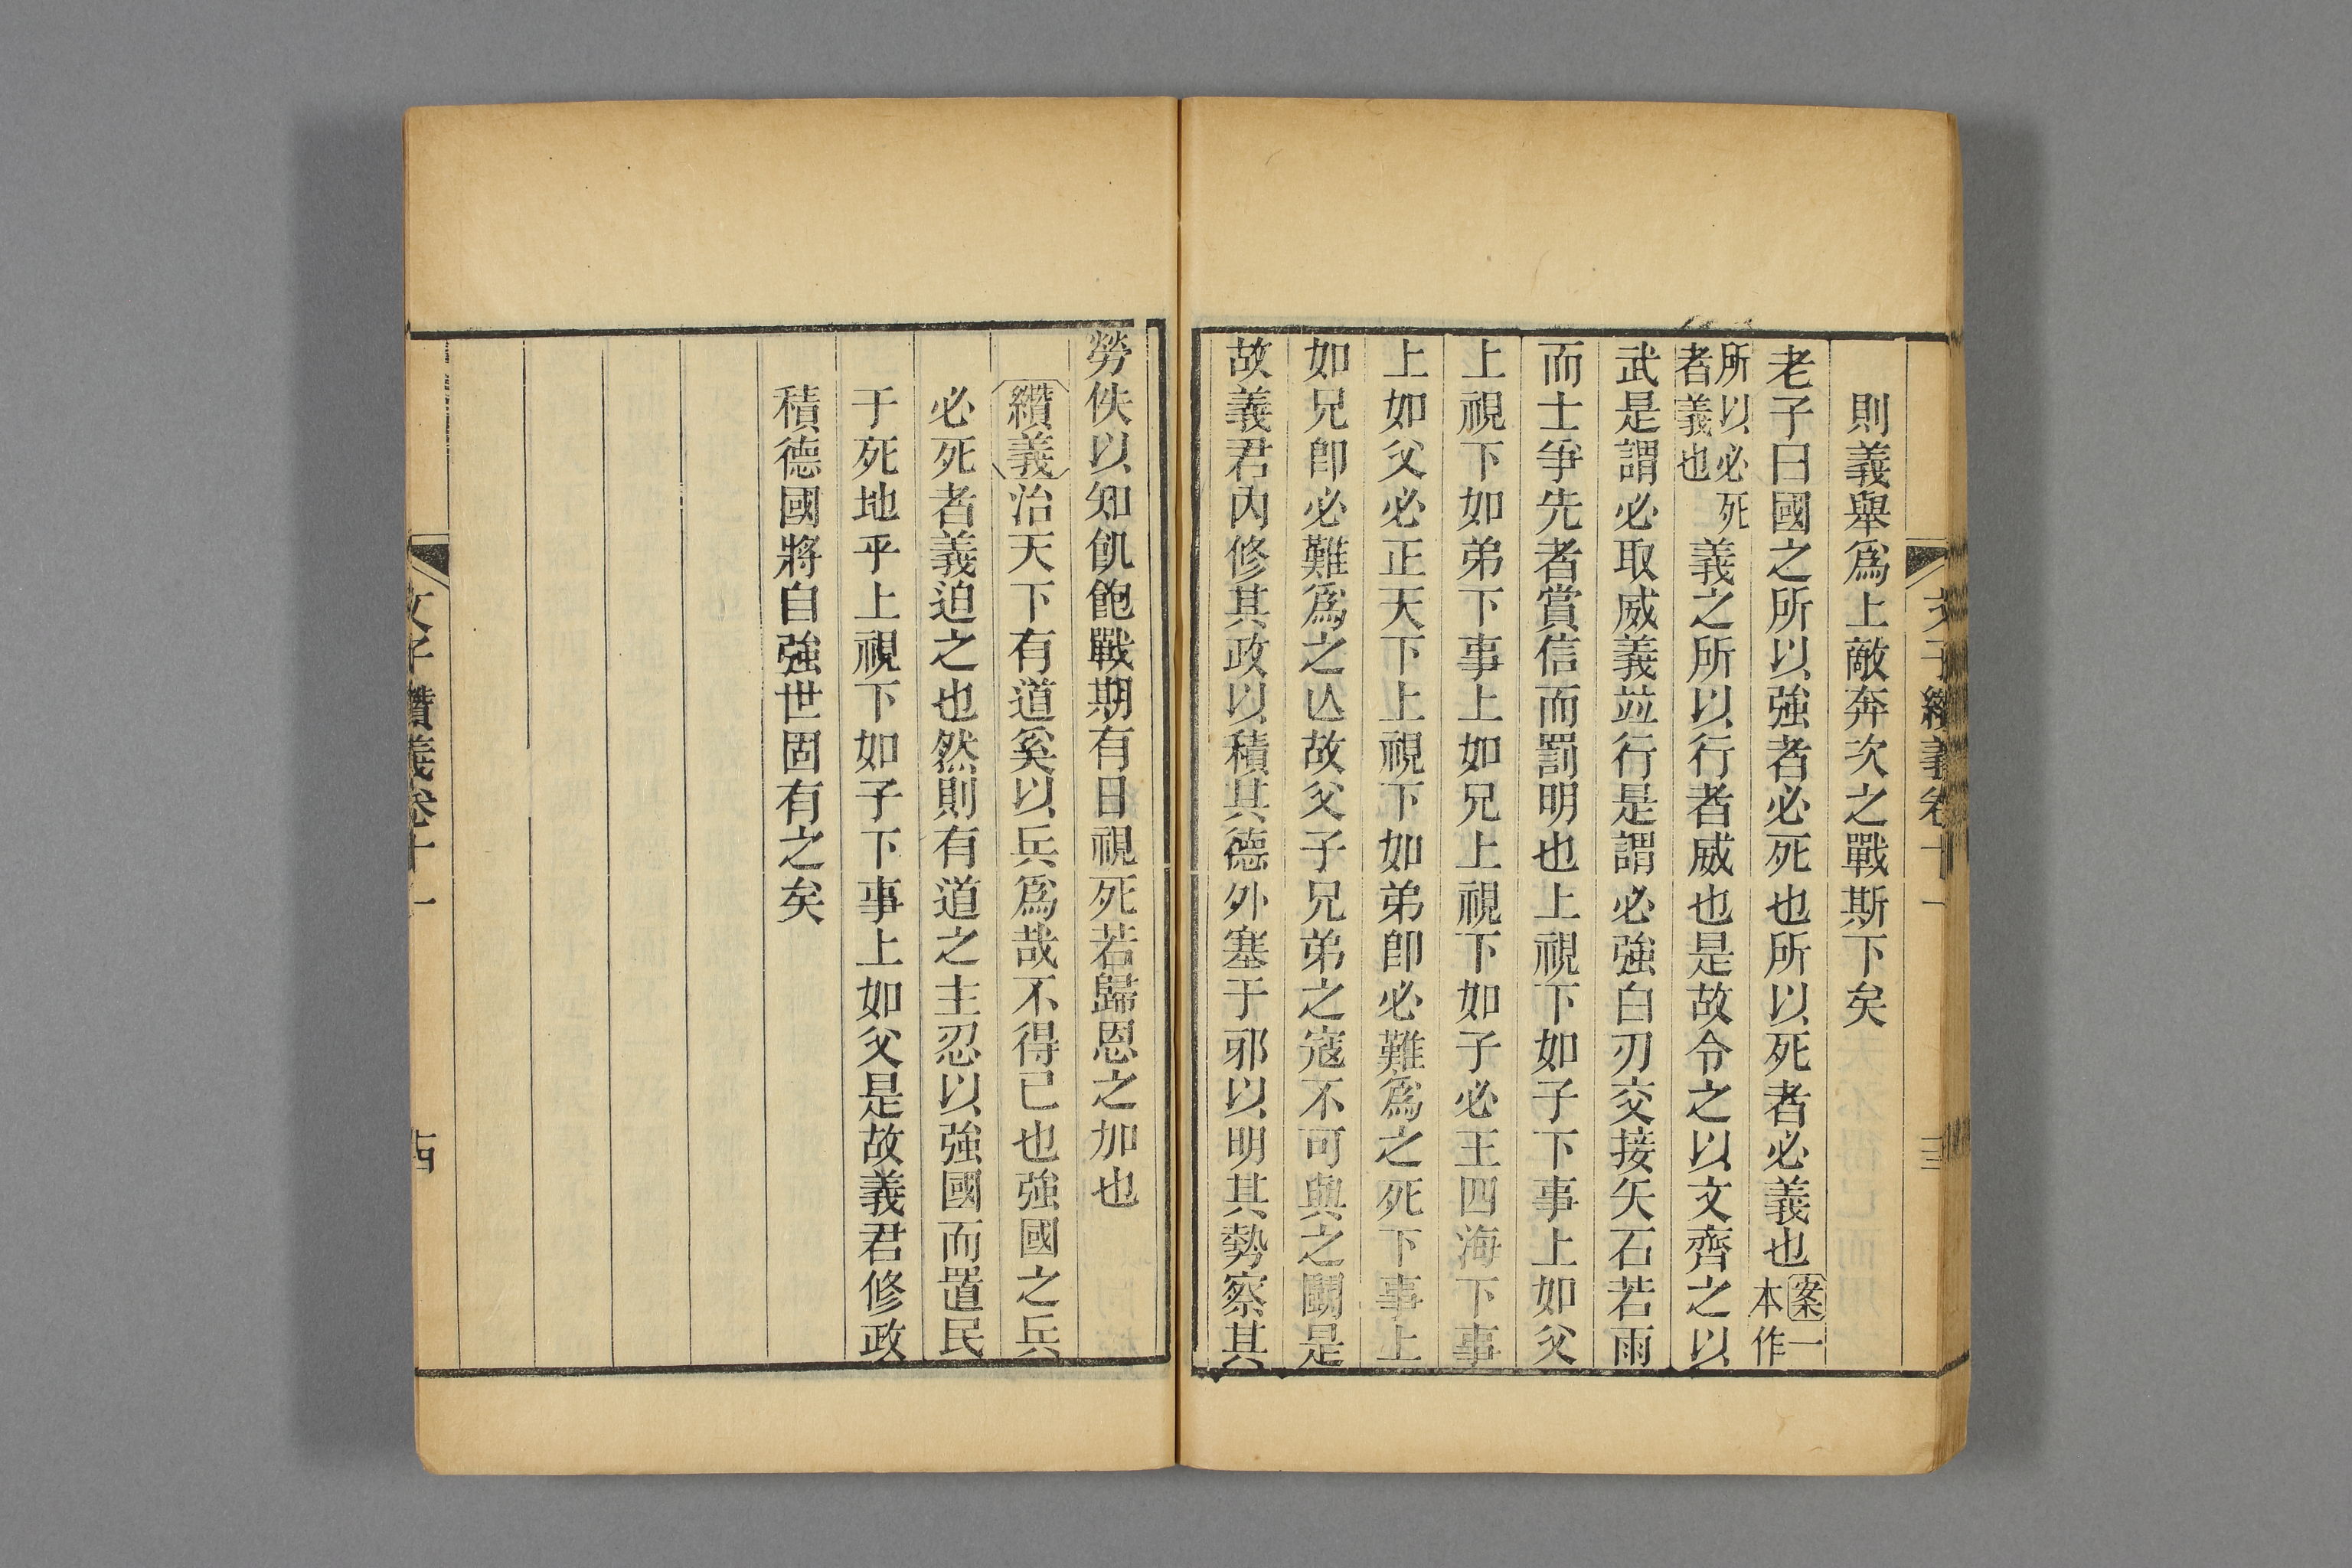 文子纘義卷十一
十三
則義舉爲上敵奔次之戰斯下矣
老子曰國之所以強者必死也所以死者必義也案一本作
所以必死者義也義之所以行者威也是故令之以文齊之以
武是謂必取威義竝行是謂必強白刃交接矢石若雨
而士爭先者賞信而罰明也上視下如子下事上如父
上視下如弟下事上如兄上視下如子必王四海下事
上如父必正天下上視下如弟卽必難爲之死下事上
如兄卽必難爲之亾故父子兄弟之寇不可與之鬭是
故義君內修其政以積其德外塞于邪以明其勢察其
勞佚以知飢飽戰期有日視死若歸恩之加也
纘義治天下有道奚以兵爲哉不得已也強國之兵
必死者義迫之也然則有道之主忍以強國而置民
于死地乎上視下如子下事上如父是故義君修政
積德國將自強世固有之矣
文子纘義卷十一
十四